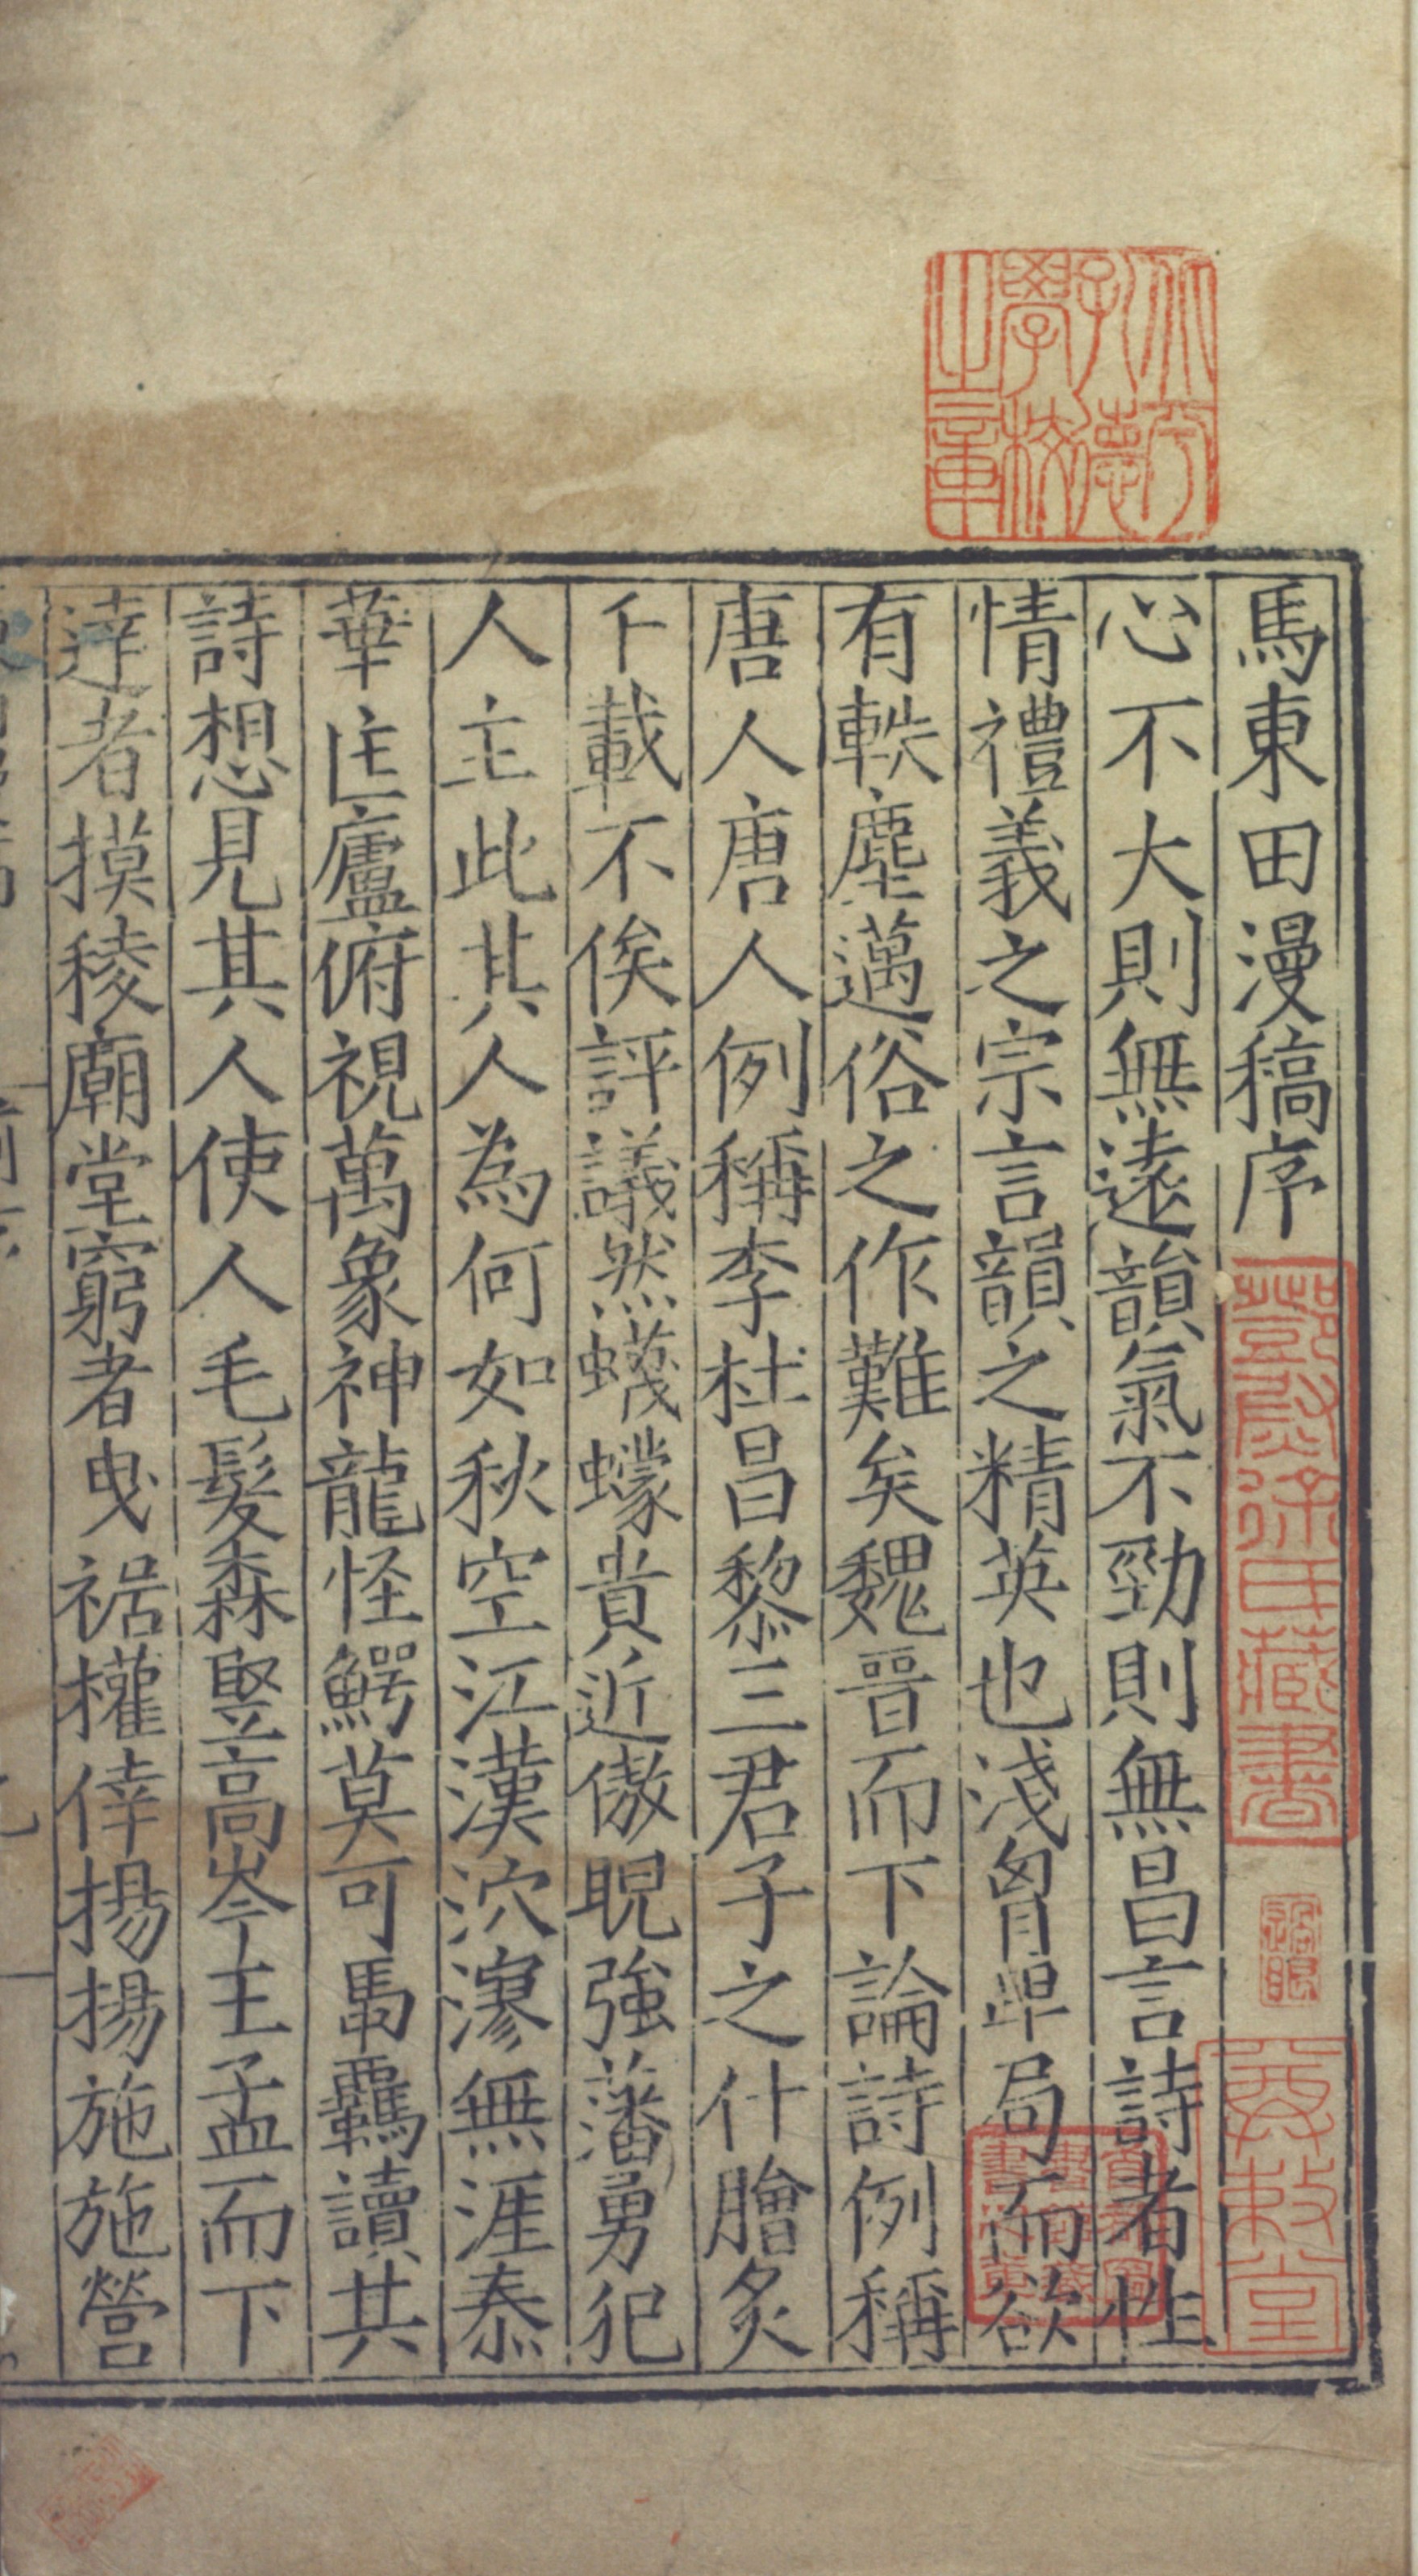 馬東田漫稿序
心不大則無遠韻氣不勁則無昌言詩者性
情禮義之宗言韻之精英也淺胷卑局而欲
有軼塵邁俗之作難矣魏晉而下論詩例稱
唐人唐人例稱李杜昌黎三君子之什膾炙
千載不俟評議然蠛蠓貴近傲睨強藩勇犯
人主此其人為何如秋空江漢泬漻無涯泰
華匡廬俯視萬象神龍怪鰐莫可馽羈讀其
詩想見其人使人毛髮森竪高岑王孟而下
達者摸稜廟堂窮者曳裾權倖揚揚施施營
之學孔北
章校德平
鄞蝸寄徐氏藏書
養拙堂